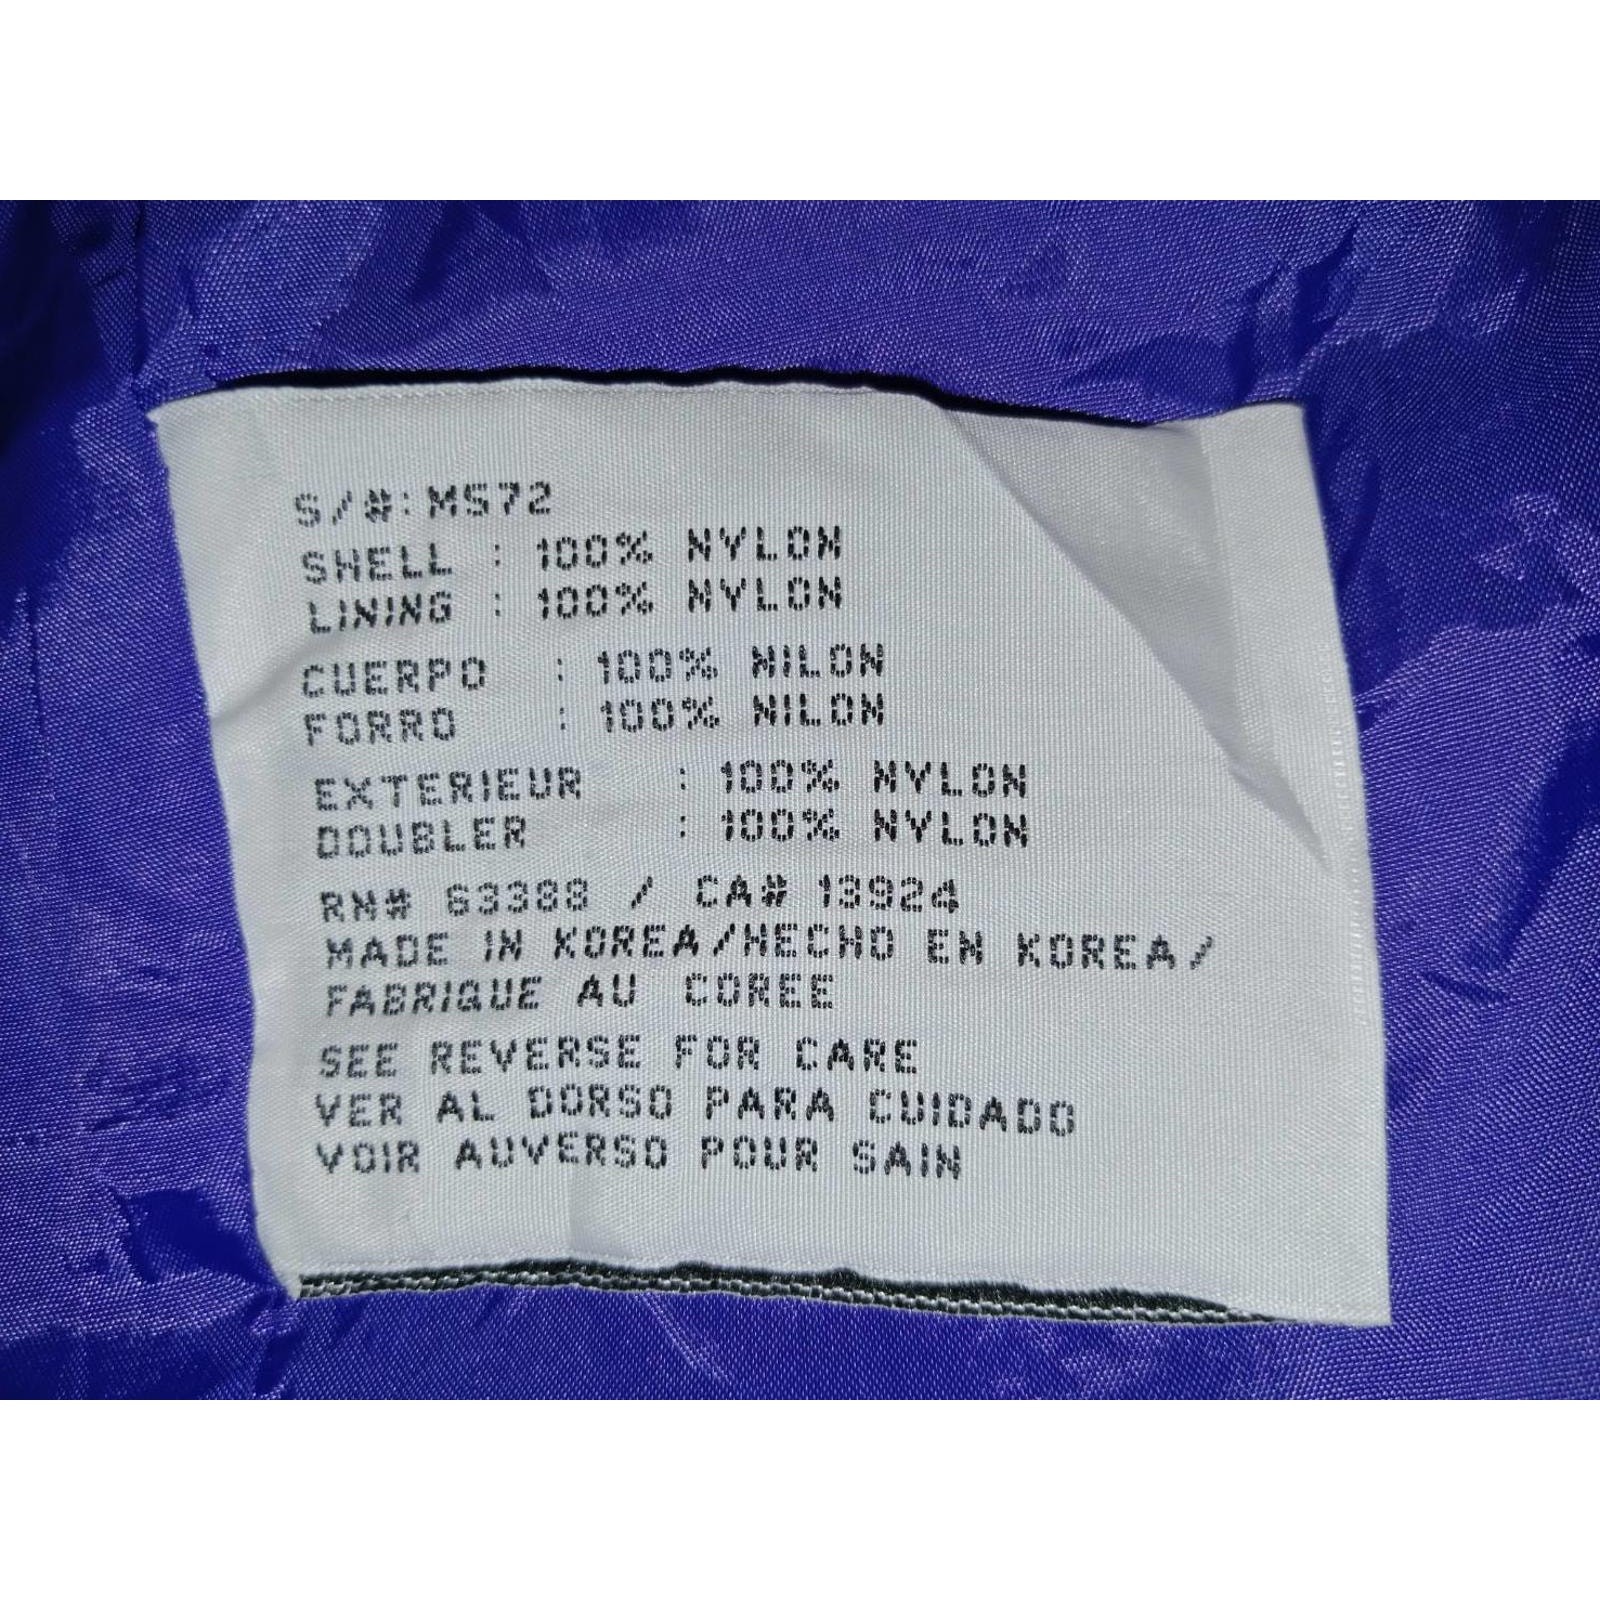 S/#: MS72
SHELL : 100% NYLON
LINING : 100% NYLON
CUERPO : 100% NILON
FORRO : 100% NILON
EXTERIEUR : 100% NYLON
DOUBLER : 100% NYLON
RN# 63388 / CA# 13924
MADE IN KOREA/HECHO EN KOREA/
FABRIQUE AU COREE
SEE REVERSE FOR CARE
VER AL DORSO PARA CUIDADO
VOIR AUVERSO POUR SAIN